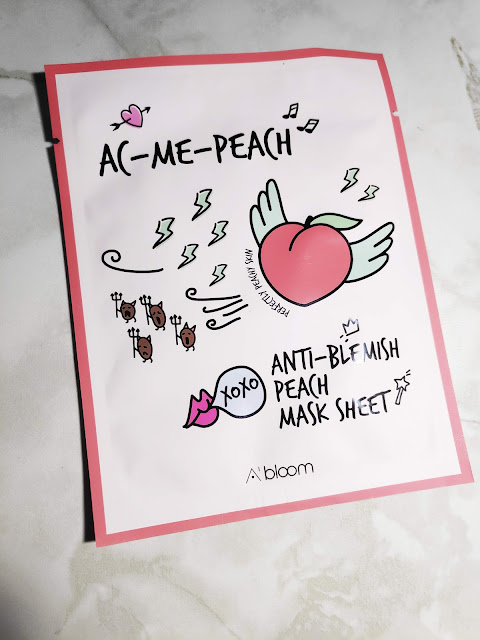 AC-ME-PEACH
PERFECTLY PEACHY SKIN
XOXO
ANTI-BLEMISH
PEACH
MASK SHEET
A'bloom